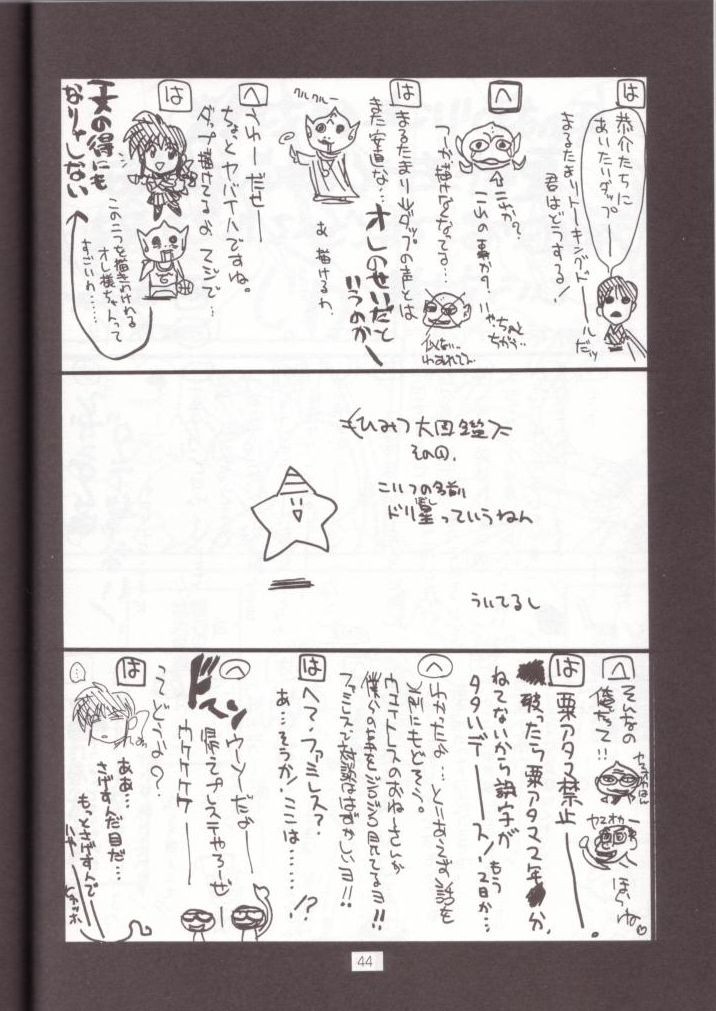 は
恭介たちに
あいたいダップー
まるたまりトーキングドールだッ
君はどうする!
へ
↑これか?
これの事か?
いや…ちゃんと
ちがく…
つーか描けなくなってる…
は
まるたまりはダップの声とは
また安直な…
オレのせいだと
いうのかー
似ない…
クルクルー
あ 描けるわ
へ
ふわーだせー
ちょっとヤバイハですね。
ダップ描けてるよ マジで…
は
この二つを描きわけれる
オレ様ちゃんって
すごいわ……
一文の得にも
なりゃしない
ひみつ大図鑑
その1.
こいつの名前
ドリ星っていうねん
ぼし
ういてるし
へ
そんなの
俺だって!!
ヤマオカ
ほらね♡
は
粟アタマ禁止ー
破ったら粟アタマ2年か、
ねてないから誤字が
もう2日か…
タタいデース!
へ
わかったよ…とにあえず話を
元にもどそう。
ウェイトレスのおねーさんが
僕らの事をジロジロ見てるヨ!!
ファミレスで雑談ははずかしいヨ!!
は
へ?ファミレス?
あ…そうか!ここは………!?
へ
ドスン
ウーソだよー
帰ってプレステやろーぜ
ウケケケケー
は
ってどうよな?
…
ああ…
さげすんだ目だ…
もっとさげすんで
ハヤー
ヒャッホー
44